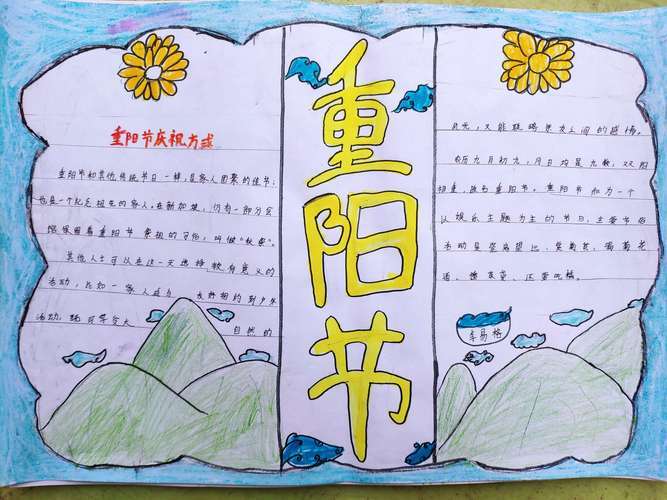 重阳节庆祝方式
重阳节和其他传统节日一样,是家人团聚的佳节;
也是一个纪念祖先的家人。在新加坡,仍有一部分客
保留着重阳节 祭祖的习俗,叫做“秋祭”。
其他人士可以在这一天选择较有意义的
活动,比如一家人或与 友好相约到户外
活动,既可享分天 自然的
重阳节
风光,又能联络亲友之间的感情。
农历九月初九,月日均是九数,双阳
相重,故名重阳节。重阳节和为一个
以娱乐主题为主的节日,主要节俗
活动是登高望远、赏菊花、喝菊花
酒、插茱萸、还要吃糕。
李易格